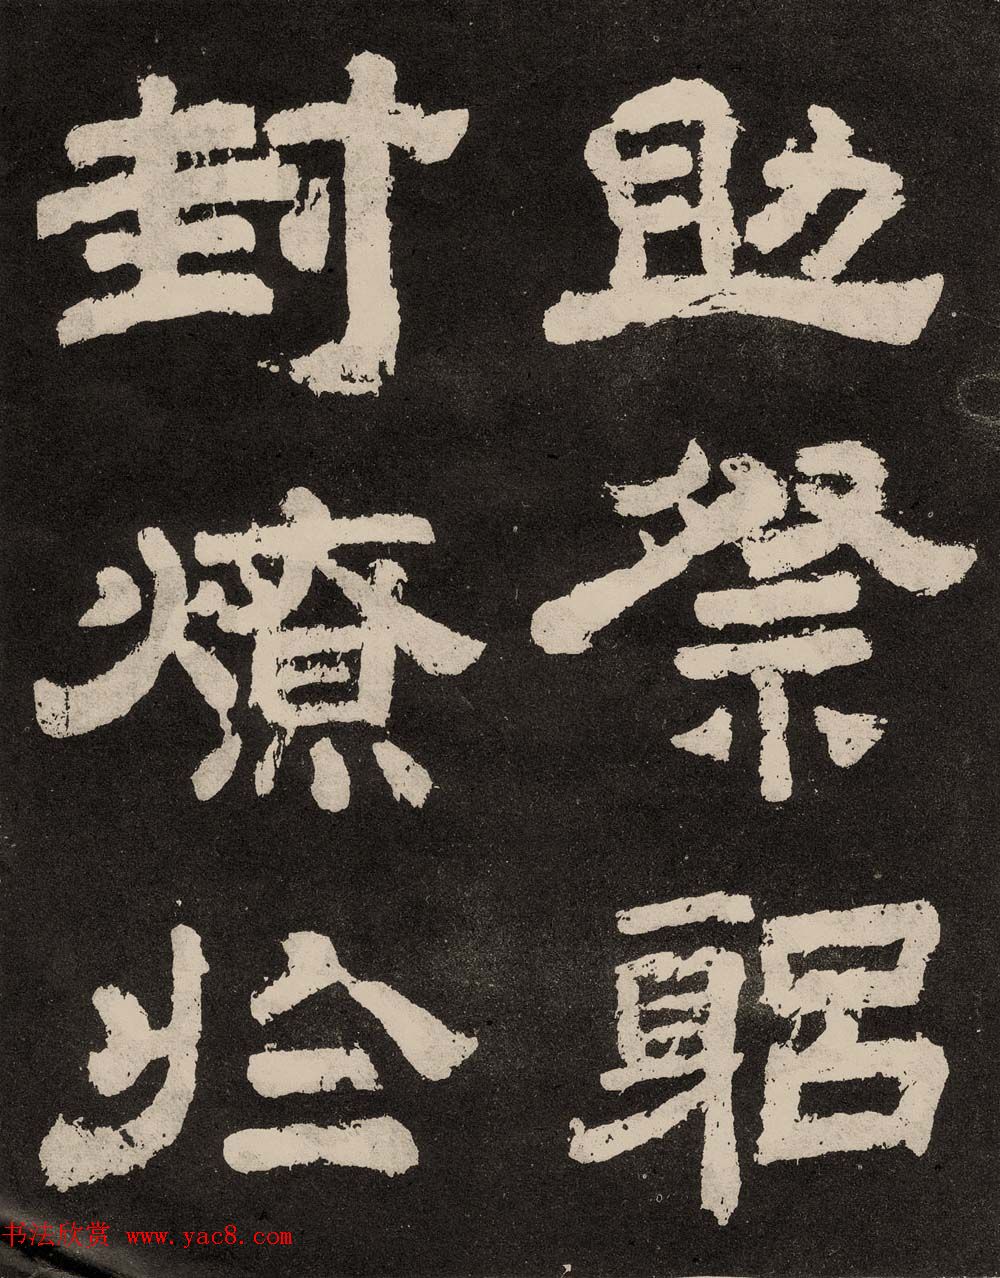 助祭躳
封燎於
书法欣赏 www.yac8.com